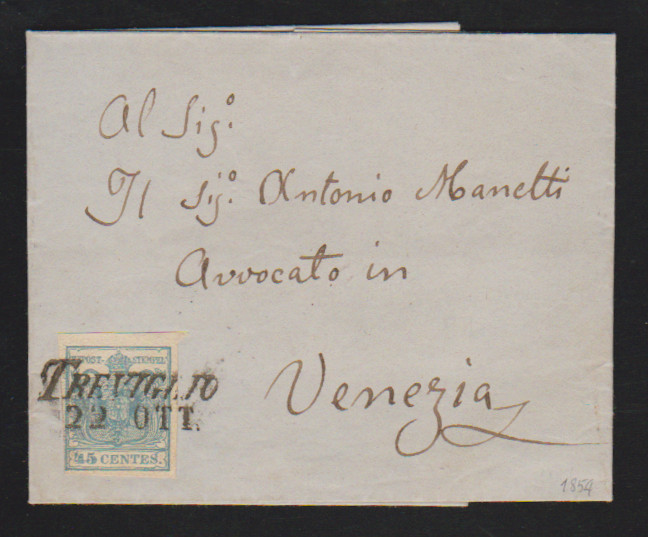 Al Sig.º
Il Sig.º Antonio Manetti
Avvocato in
Venezia
POST-STEMPEL
TREVIGLIO
22 OTT.
45 CENTES.
1854